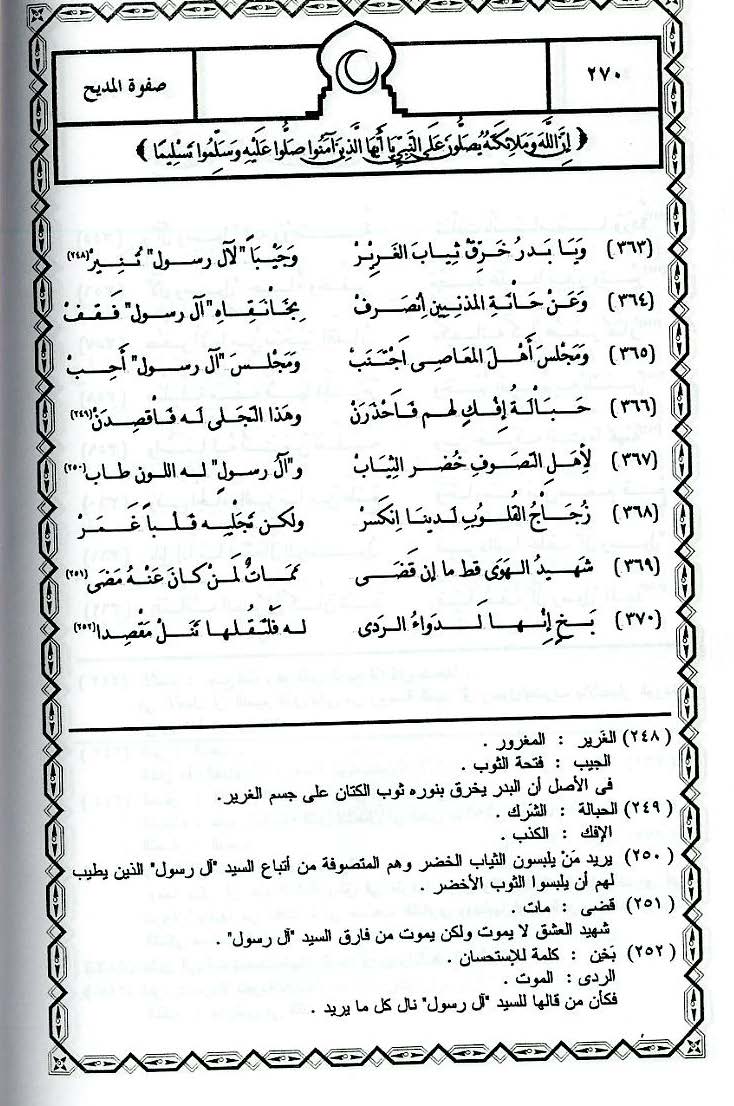 ٢٧٠
صفوة المديح
﴿ إِنَّ اللَّهَ وَمَلَائِكَتَهُ يُصَلُّونَ عَلَى النَّبِيِّ يَا أَيُّهَا الَّذِينَ آمَنُوا صَلُّوا عَلَيْهِ وَسَلِّمُوا تَسْلِيمًا ﴾
(٣٦٣) وَيَا بَدرُ خَرِّقْ ثِيَابَ الغَرِيْرْ وَجَيْبَاً "لآل رسول" تُنِيرْ (٢٤٨)
(٣٦٤) وَعَنْ حَانَةِ المذنِبِينَ اِنصَرِفْ بِخَانْقَاهِ "آل رسول" فَقِفْ
(٣٦٥) وَمَجْلسَ أَهْلِ المعَاصِى اجْتَنِبْ وَمَجْلسَ "آل رسول" أَحِبْ
(٣٦٦) حَبَالَةُ إفْكٍ لهم فَاحْذَرَنْ وهذا التَجَلى له فَاقصِدَنْ (٢٤٩)
(٣٦٧) لِأهْلِ التَصَوفِ خُضر الثِيَابْ و"آلُ رسولٍ" له اللون طاب (٢٥٠)
(٣٦٨) زُجَاجُ القُلوبِ لدينا اِنكَسرْ ولكن تَجَلِّيه قلباً غَمَرْ
(٣٦٩) شهِيدُ الهَوَى قط ما إن قَضَى مَمَاتٌ لمنْ كانَ عَنْهُ مَضَى (٢٥١)
(٣٧٠) بَخٍ إنها لَدواءُ الردى له فَلْتَقُلها تَنَلْ مَقْصِدا (٢٥٢)
(٢٤٨) الغَرير : المغرور .
الجيب : فتحة الثوب .
فى الأصل أن البدر يخرق بنوره ثوب الكتان على جسم الغرير.
(٢٤٩) الحبالة : الشَرَك .
الإفك : الكذب .
(٢٥٠) يريد مَنْ يلبسون الثياب الخضر وهم المتصوفة من أتباع السيد "آل رسول" الذين يطيب
لهم أن يلبسوا الثوب الأخضر .
(٢٥١) قضى : مات .
شهيد العشق لا يموت ولكن يموت من فارق السيد "آل رسول" .
(٢٥٢) بَخٍن : كلمة للإستحسان .
الردى : الموت .
فكأن من قالها للسيد "آل رسول" نال كل ما يريد .